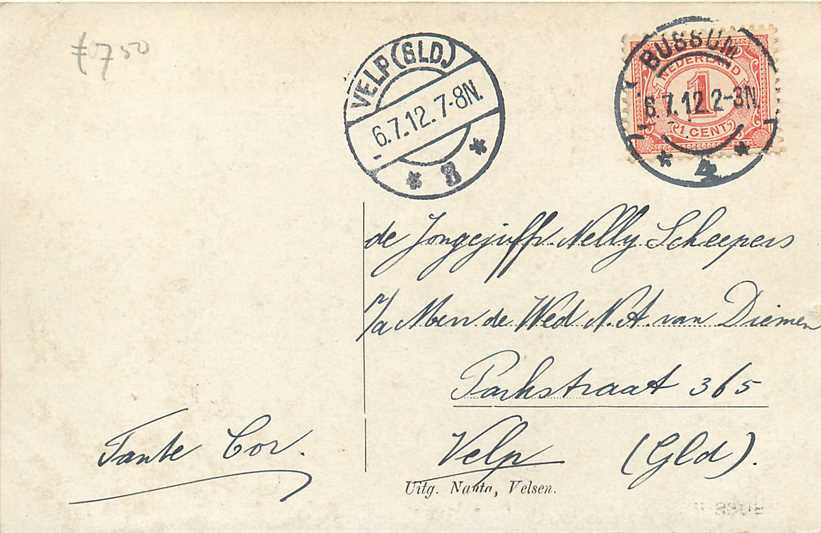 ƒ 7 50
VELP (GLD.)
6.7.12.7-8N.
* 3 *
BUSSUM
NEDERLAND
6.7.12.2-3N.
1
1 CENT
* 4 *
de Jongejuffr. Nelly Scheepers
Mevr de Wed N.A. van Diemen
Parkstraat 365
Velp (Gld).
Tante Cor.
Uitg. Nanta, Velsen.